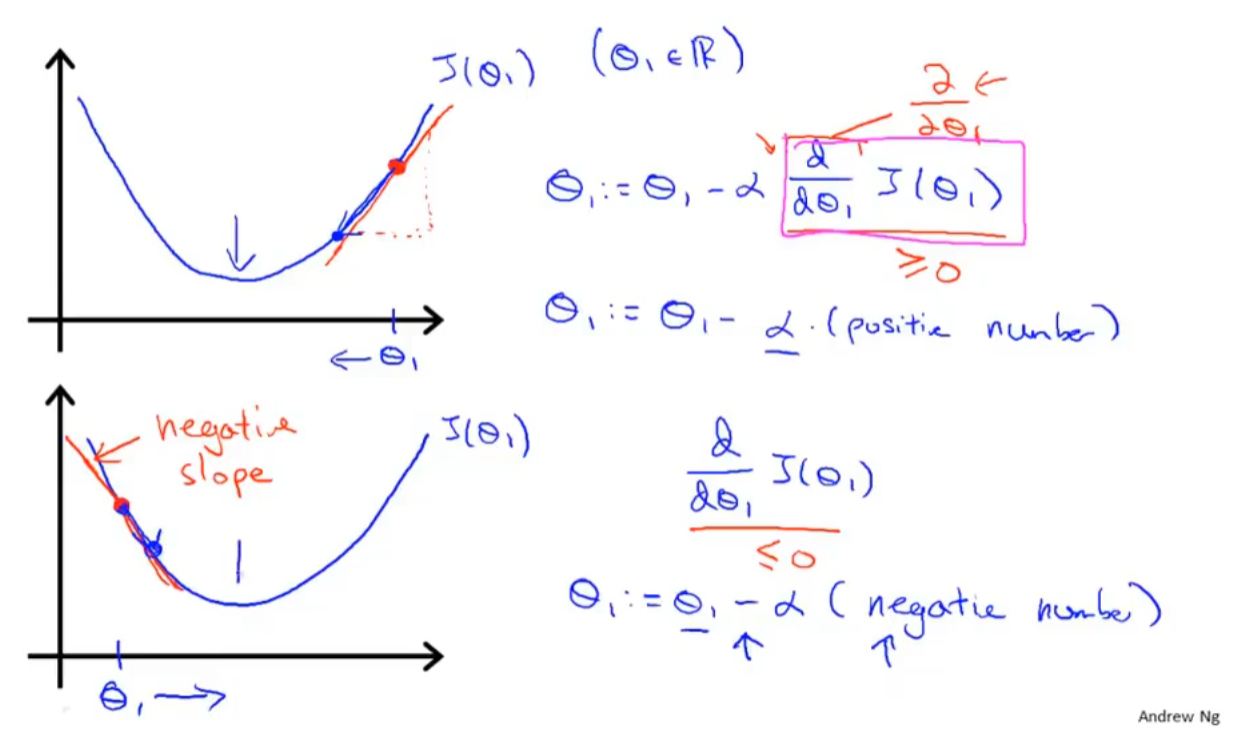 J(θ₁) (θ₁ ∈ ℝ)
∂/∂θ₁ ←
θ₁ := θ₁ - α d/dθ₁ J(θ₁)
≥ 0
θ₁ := θ₁ - α · (positive number)
← θ₁
negative
slope
J(θ₁)
d/dθ₁ J(θ₁)
≤ 0
θ₁ := θ₁ - α (negative number)
θ₁ →
Andrew Ng